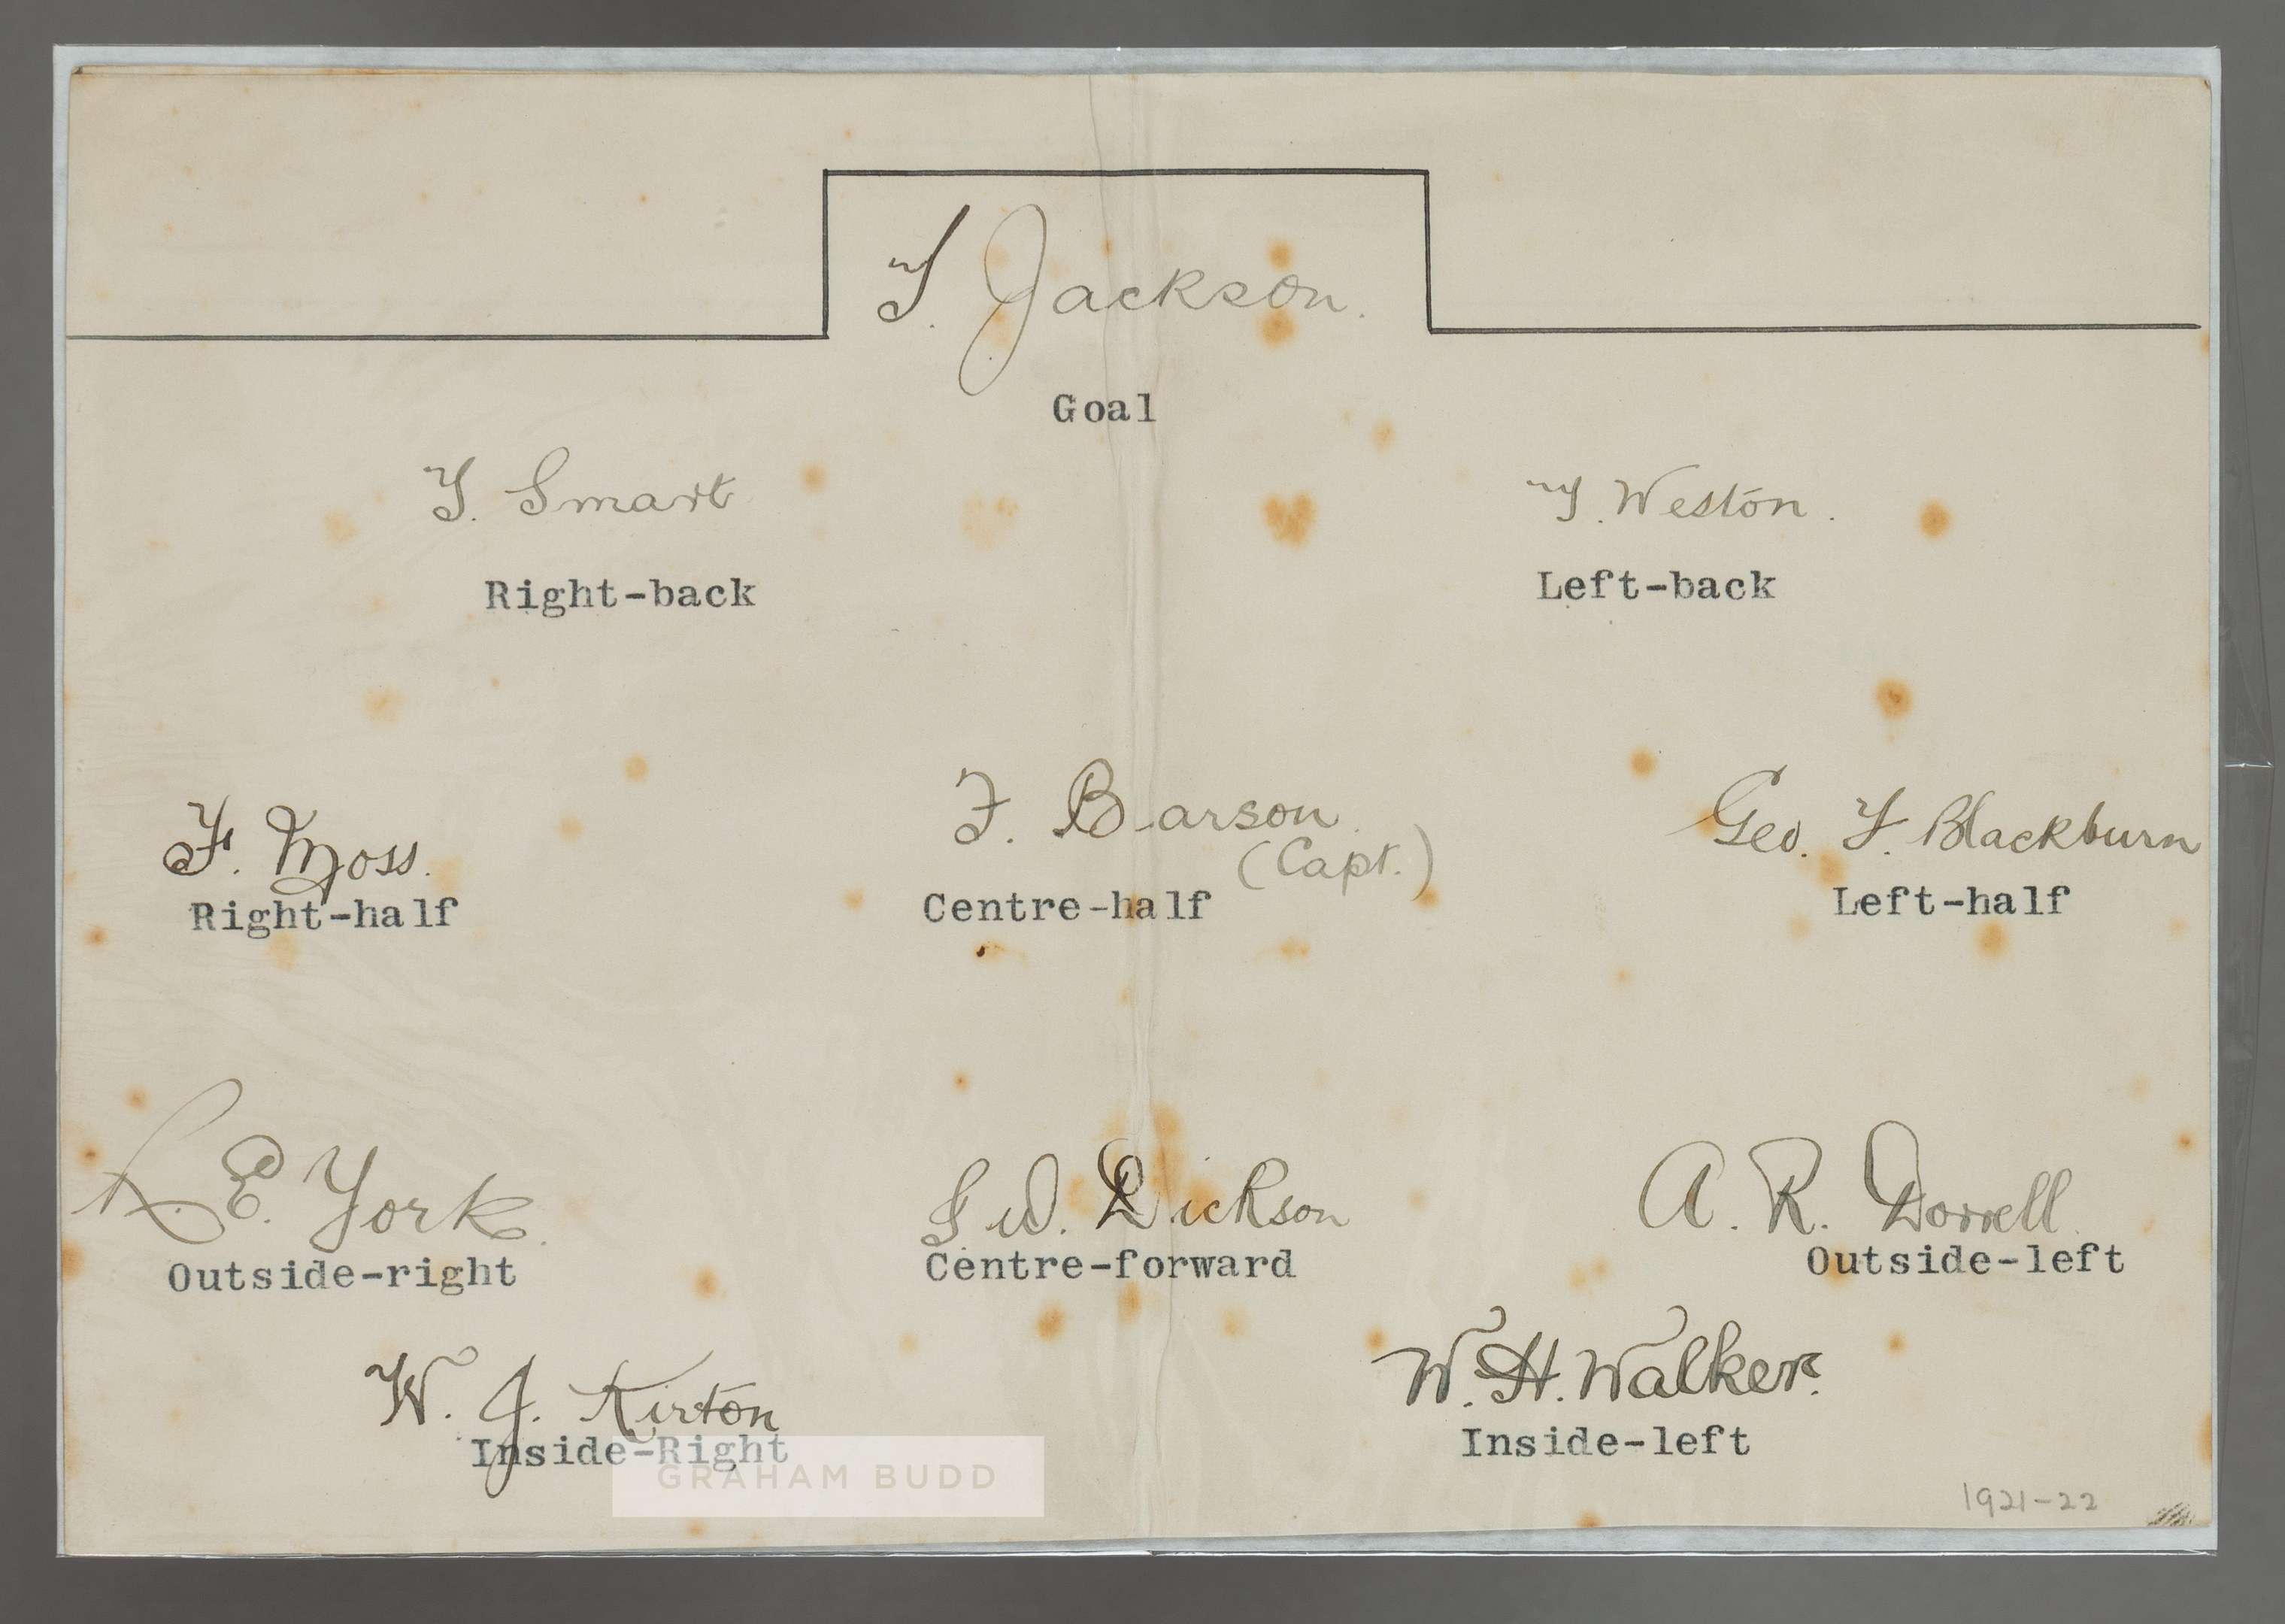 T. Jackson.
Goal
T. Smart
T. Weston.
Right-back
Left-back
F. Moss.
F. Barson
(Capt.)
Geo. F. Blackburn
Right-half
Centre-half
Left-half
R. E. York.
G W. Dickson
A. R. Dorrell.
Outside-right
Centre-forward
Outside-left
W. J. Kirton
W. H. Walker.
Inside-Right
Inside-left
GRAHAM BUDD
1921-22